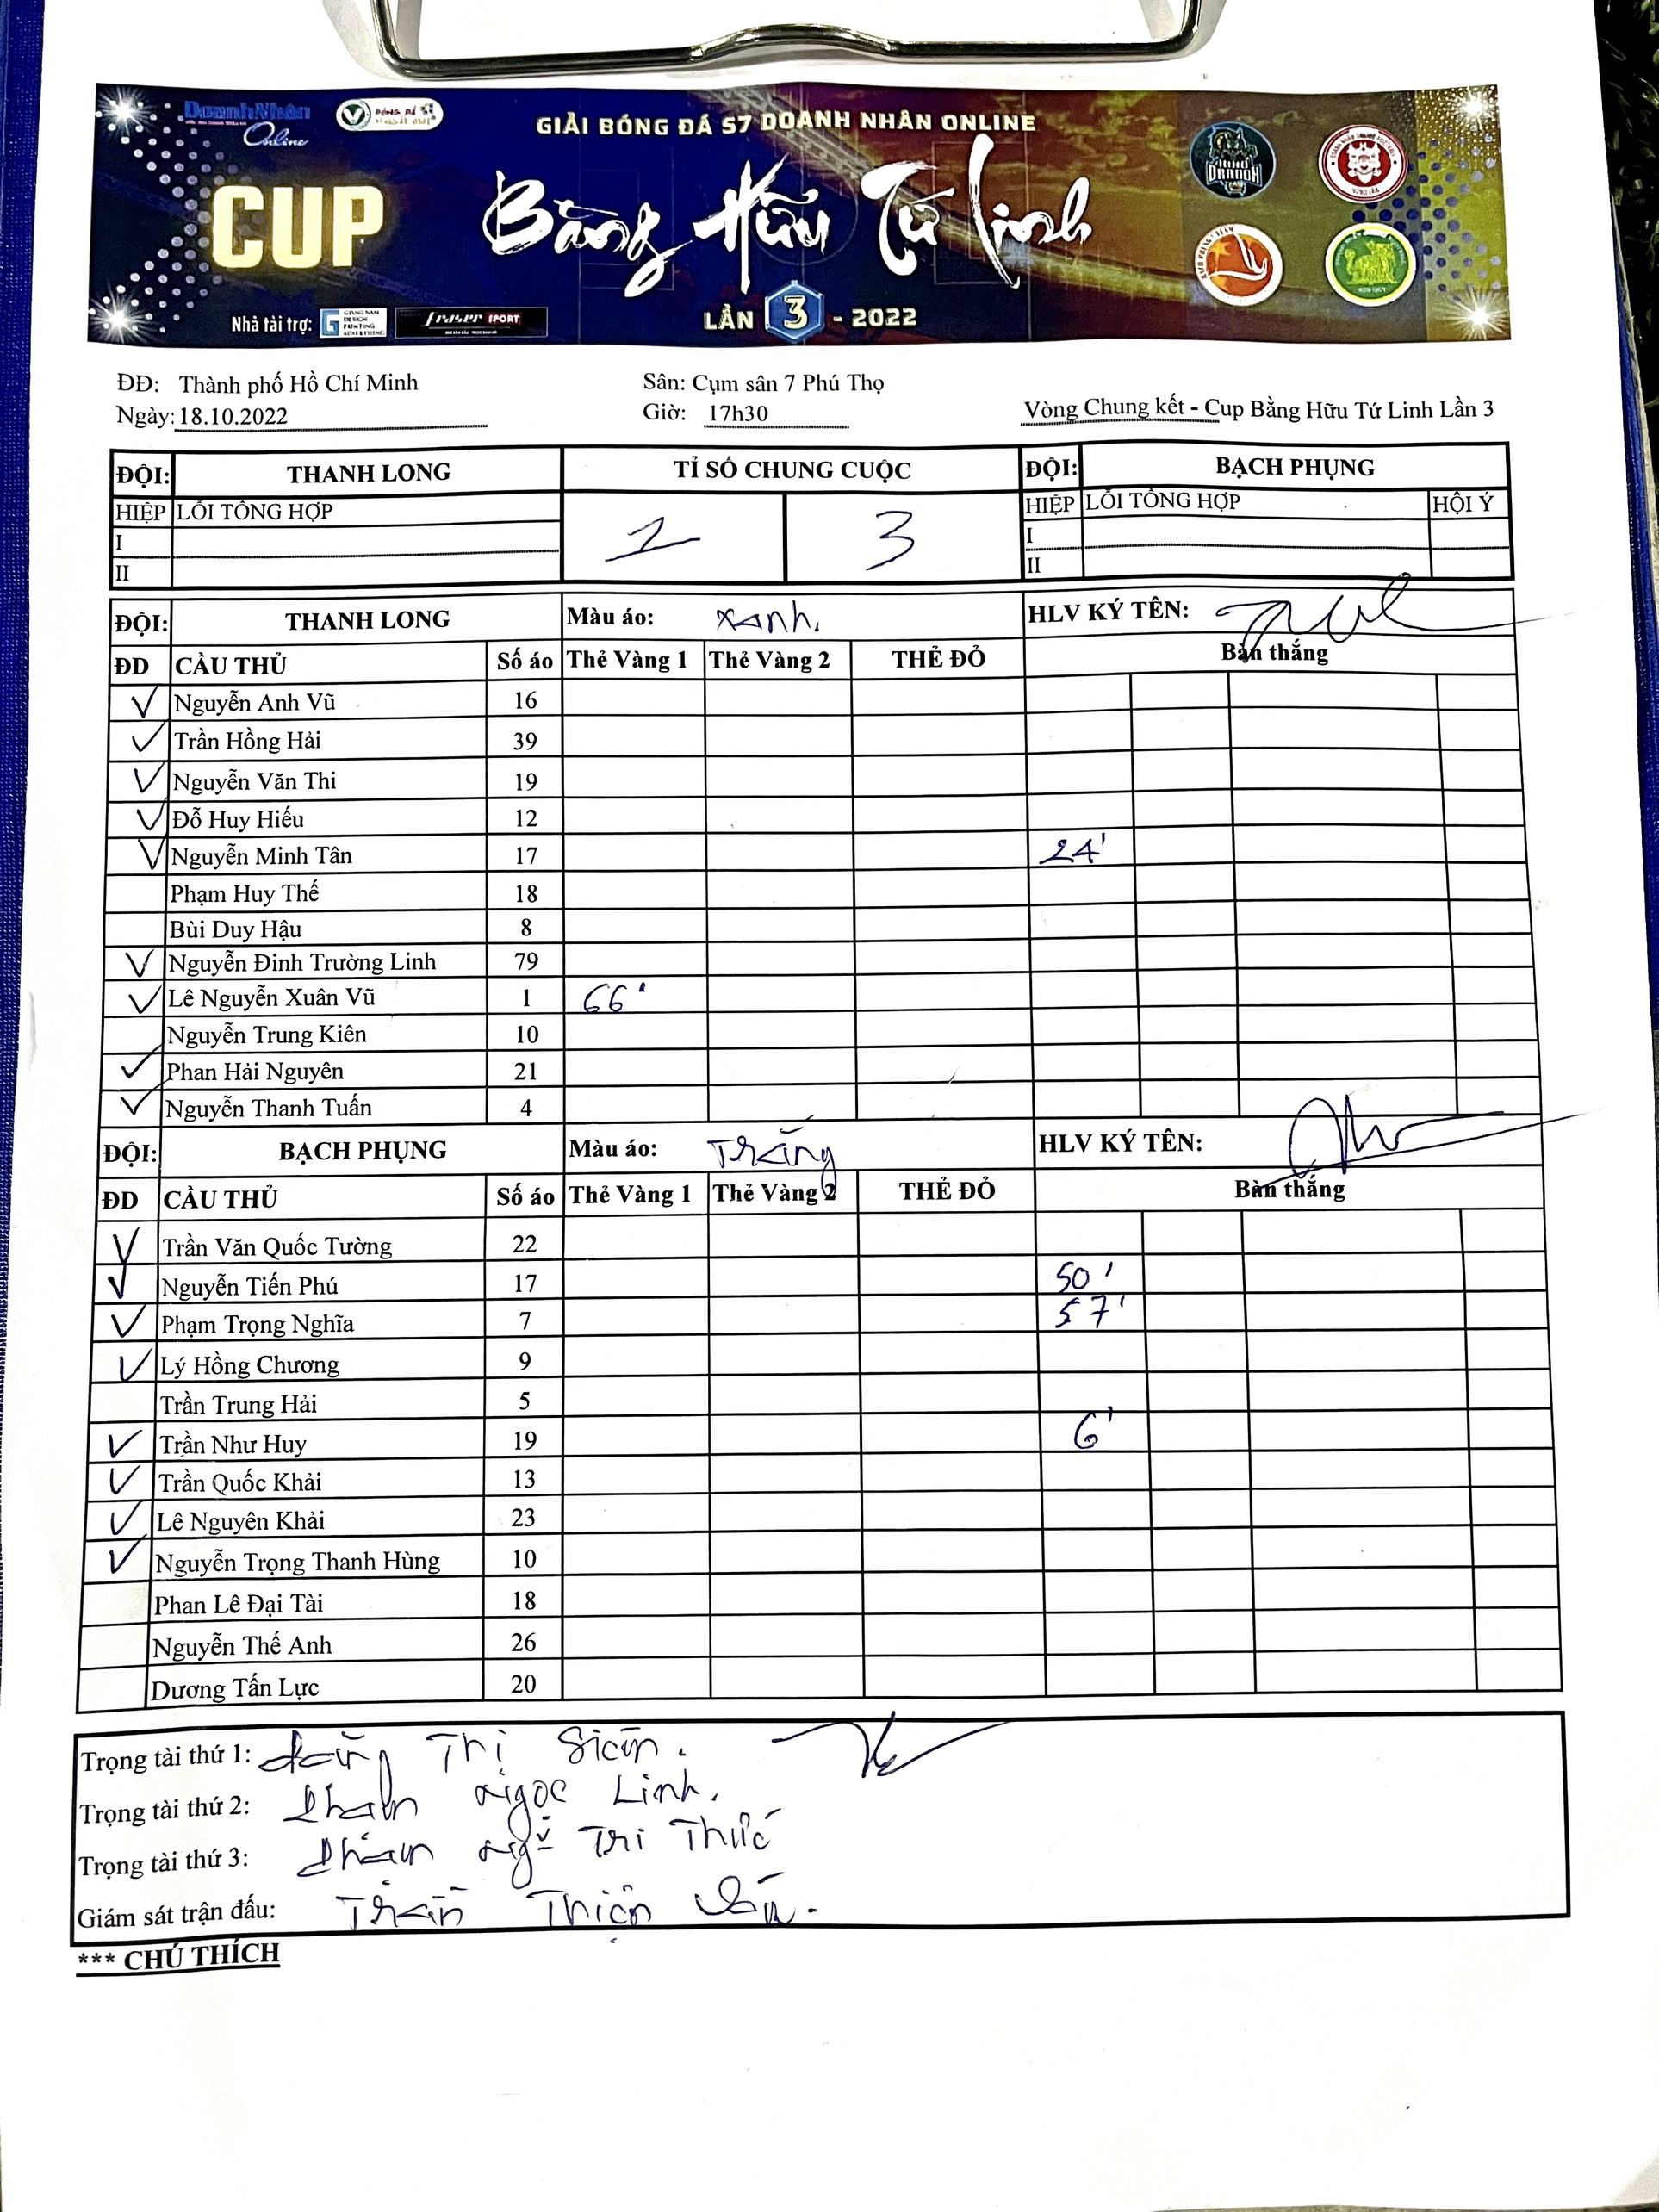 DoanhNhân
Online
GIẢI BÓNG ĐÁ S7 DOANH NHÂN ONLINE
CUP
Bằng Hữu Tứ Linh
LẦN 3 - 2022
Nhà tài trợ:
fraser SPORT
DRAGON
ĐĐ: Thành phố Hồ Chí Minh Sân: Cụm sân 7 Phú Thọ
Ngày: 18.10.2022 Giờ: 17h30 Vòng Chung kết - Cup Bằng Hữu Tứ Linh Lần 3
ĐỘI: THANH LONG TỈ SỐ CHUNG CUỘC ĐỘI: BẠCH PHỤNG
HIỆP LỖI TỔNG HỢP 1 3 HIỆP LỖI TỔNG HỢP HỘI Ý
I I
II II
ĐỘI: THANH LONG Màu áo: xanh. HLV KÝ TÊN:
ĐD CẦU THỦ Số áo Thẻ Vàng 1 Thẻ Vàng 2 THẺ ĐỎ Bàn thắng
Nguyễn Anh Vũ 16
Trần Hồng Hải 39
Nguyễn Văn Thi 19
Đỗ Huy Hiếu 12
Nguyễn Minh Tân 17 24'
Phạm Huy Thế 18
Bùi Duy Hậu 8
Nguyễn Đinh Trường Linh 79
Lê Nguyễn Xuân Vũ 1 66'
Nguyễn Trung Kiên 10
Phan Hải Nguyên 21
Nguyễn Thanh Tuấn 4
ĐỘI: BẠCH PHỤNG Màu áo: Trắng HLV KÝ TÊN:
ĐD CẦU THỦ Số áo Thẻ Vàng 1 Thẻ Vàng 2 THẺ ĐỎ Bàn thắng
Trần Văn Quốc Tường 22
Nguyễn Tiến Phú 17 50'
Phạm Trọng Nghĩa 7 57'
Lý Hồng Chương 9
Trần Trung Hải 5
Trần Như Huy 19 6'
Trần Quốc Khải 13
Lê Nguyên Khải 23
Nguyễn Trọng Thanh Hùng 10
Phan Lê Đại Tài 18
Nguyễn Thế Anh 26
Dương Tấn Lực 20
Trọng tài thứ 1: Thị
Trọng tài thứ 2: Phạm Ngọc Linh.
Trọng tài thứ 3: Phạm Ngũ Tri Thức
Giám sát trận đấu: Trần Thiện
*** CHÚ THÍCH